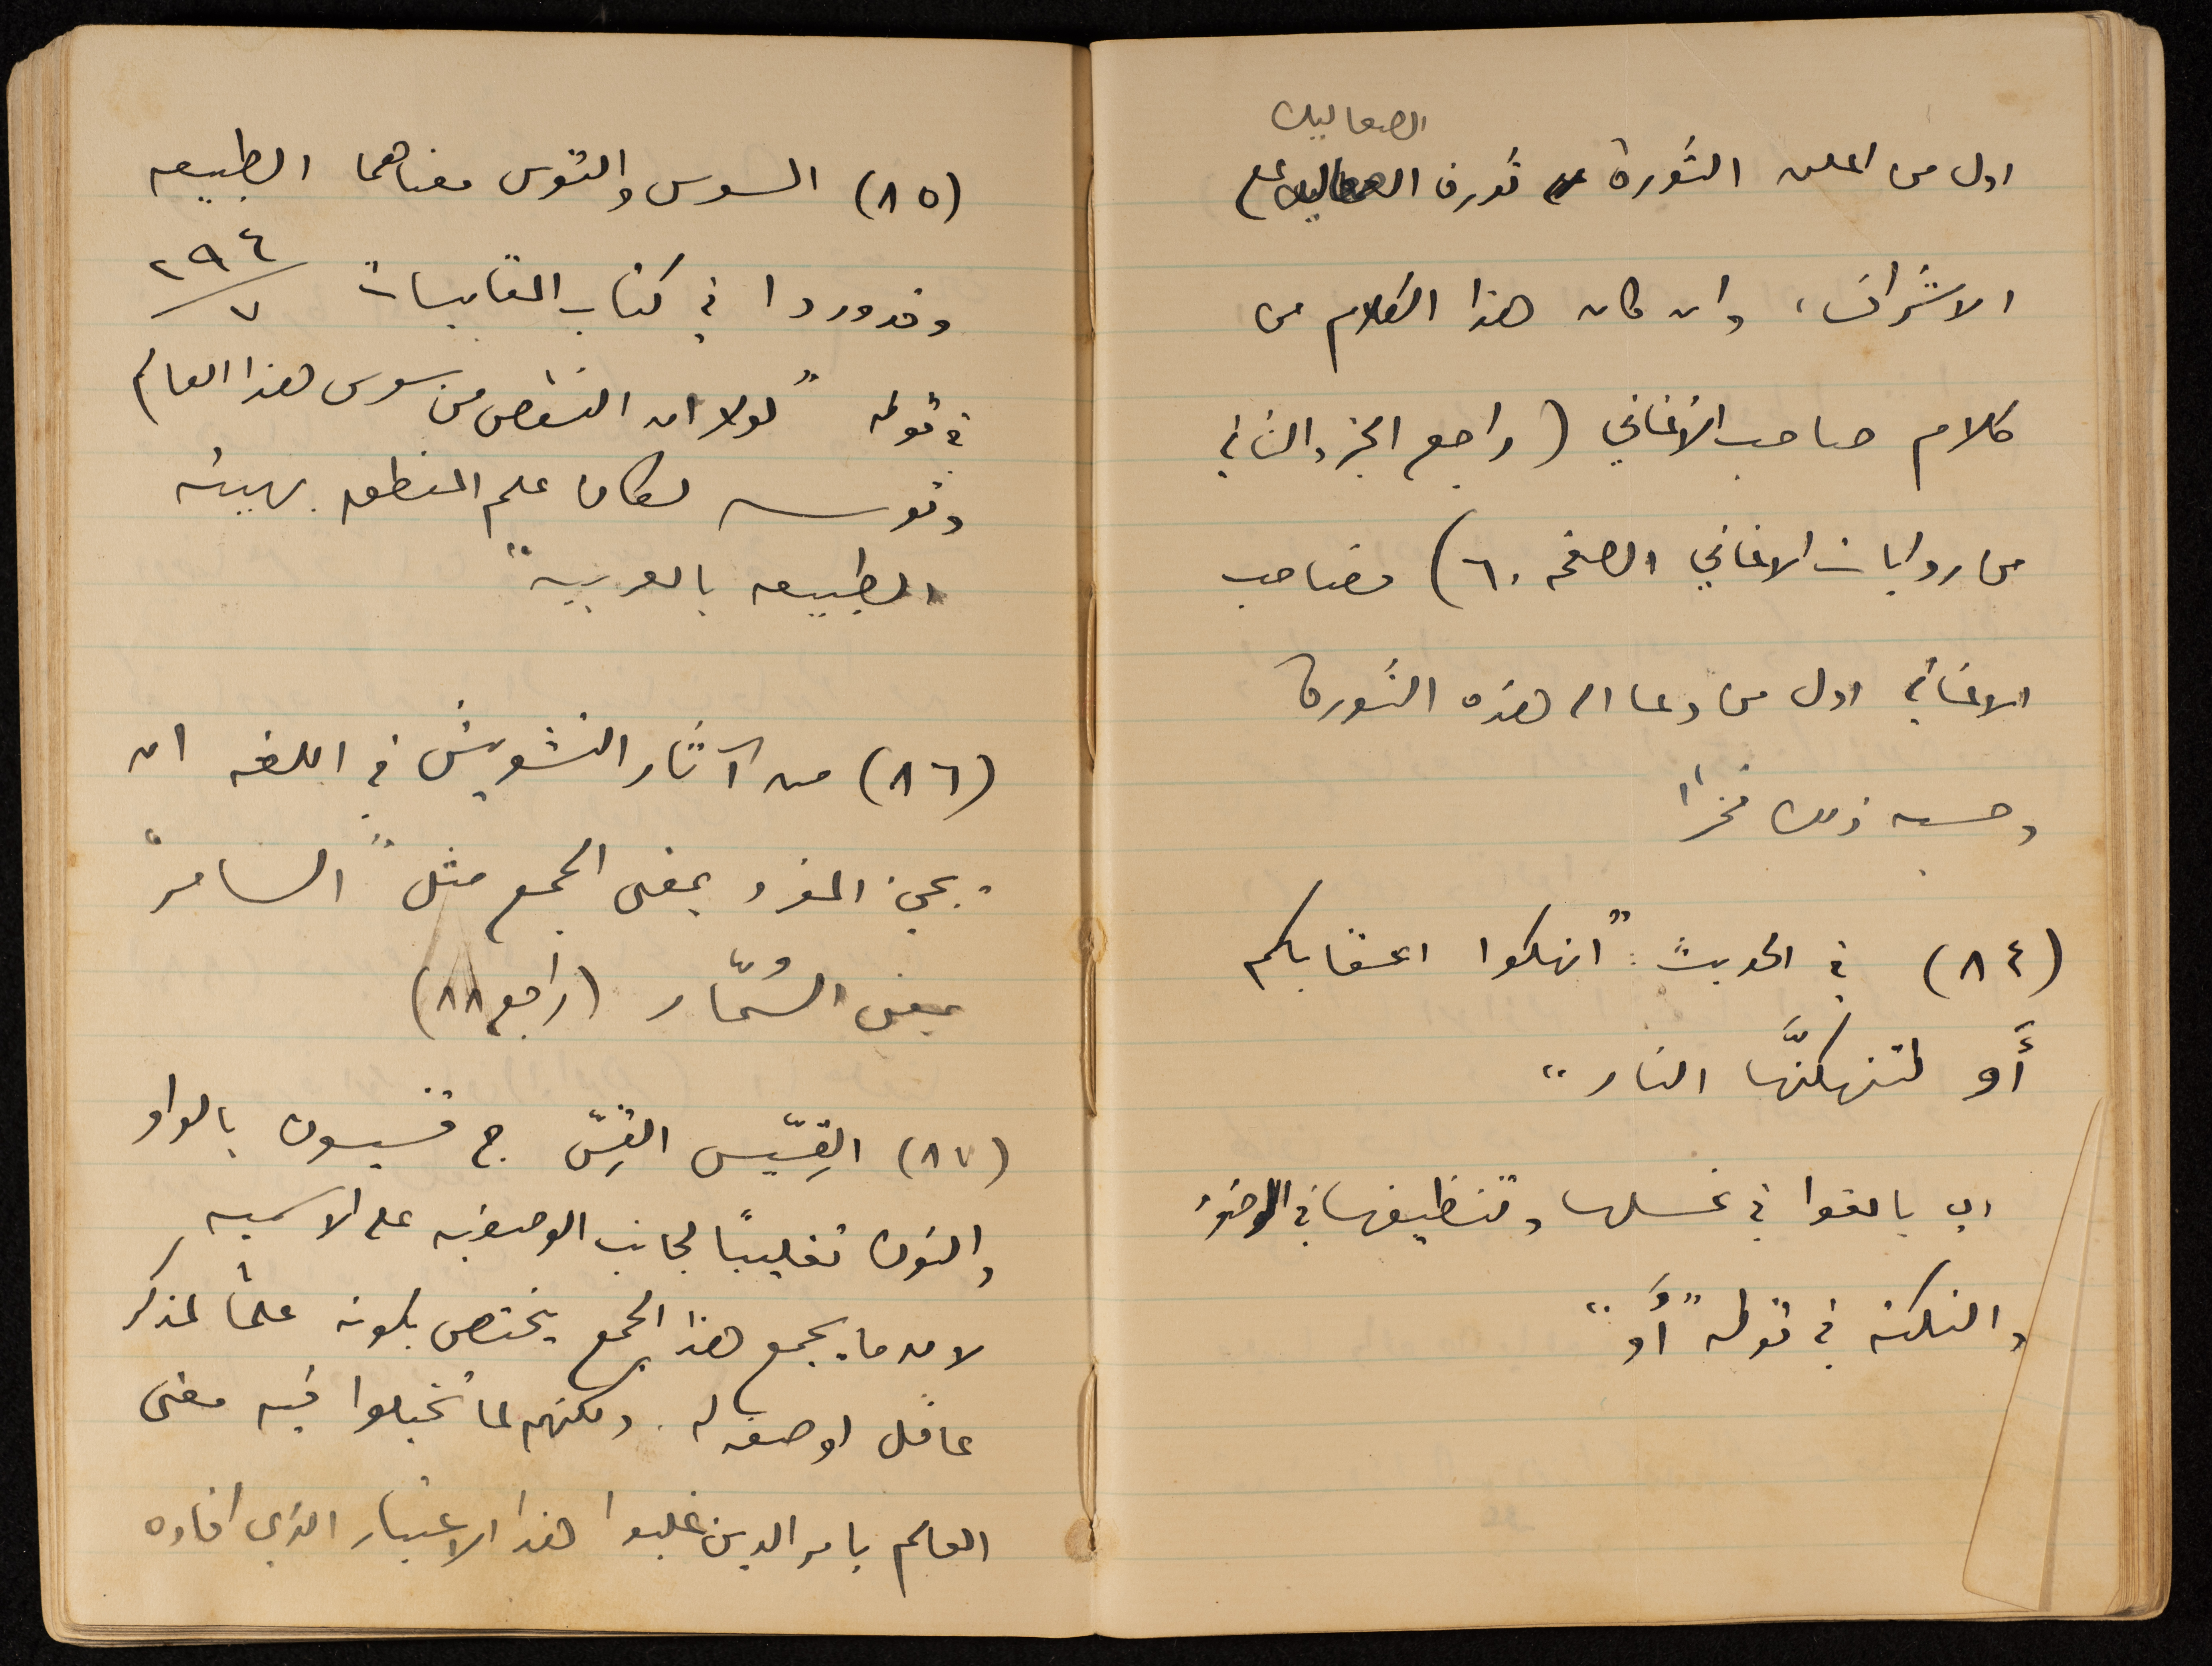 الصعاليك
اول من اعلن الثورة ثورة الصعاليك على
الاشراف، وان كان هذا الكلام من
كلام صاحب الأغاني (راجع الجزء الثاني
من روايات الاغاني الصفحه ٦٠) فصاحب
الاغاني اول من دعا الى هذه الثورة
وحسبه ذلك فخراً
(٨٤) في الحديث: "انهكوا اعقابكم
أَو لتنهكنَّها النار"
اي بالغوا في غسلها وتنظيفها في الوضوء
والنكتة في قوله "أَو"
(٨٥) السوس والتوس معناهما الطبيعه
وقد وردا في كتاب المقابسات ٢٩٤/٧
في قوله "لولا ان النقص من سوس هذا العالم
وتوسه لكان علم المنطق بهيئة
الطبيعه بالعربيه"
(٨٦) من آثار التشويش في اللغه ان
يجيء المفرد بمعنى الجمع مثل "السامر"
بمعنى السُمّار (راجع ٨٨)
(٨٧) القِسّيس القِسّ ج قسيسون بالواو
والنون تغليباً لجانب الوصفيه على الاسميه
لان ما يجمع هذا الجمع يختص بكونه علماً لمذكر
عاقل او صفه له. ولكنهم لما تخيلوا فيه معنى
العالم بامر الدين غلبوا هذا الاعتبار الذي افاده